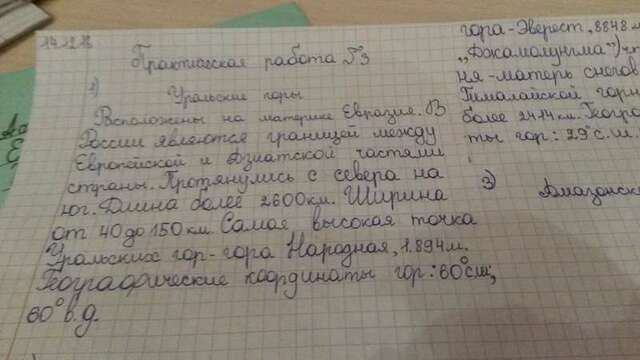 14.12.18
Практическая работа №3
1)
Уральские горы
Расположены на материке Евразия. В
России являются границей между
Европейской и Азиатской частями
страны. Протянулись с севера на
юг. Длина более 2600км. Ширина
от 40 до 150 км. Самая высокая точка
Уральских гор - гора Народная, 1.894м.
Географические координаты гор: 60°с.ш.,
60° в.д.
гора - Эверест, 8848 м
„Джамолунгма")
ня - матерь снегов
Гималайской горн
более 2414 км. Геогр
ты гор: 29° с. ш.
3) Амазонск